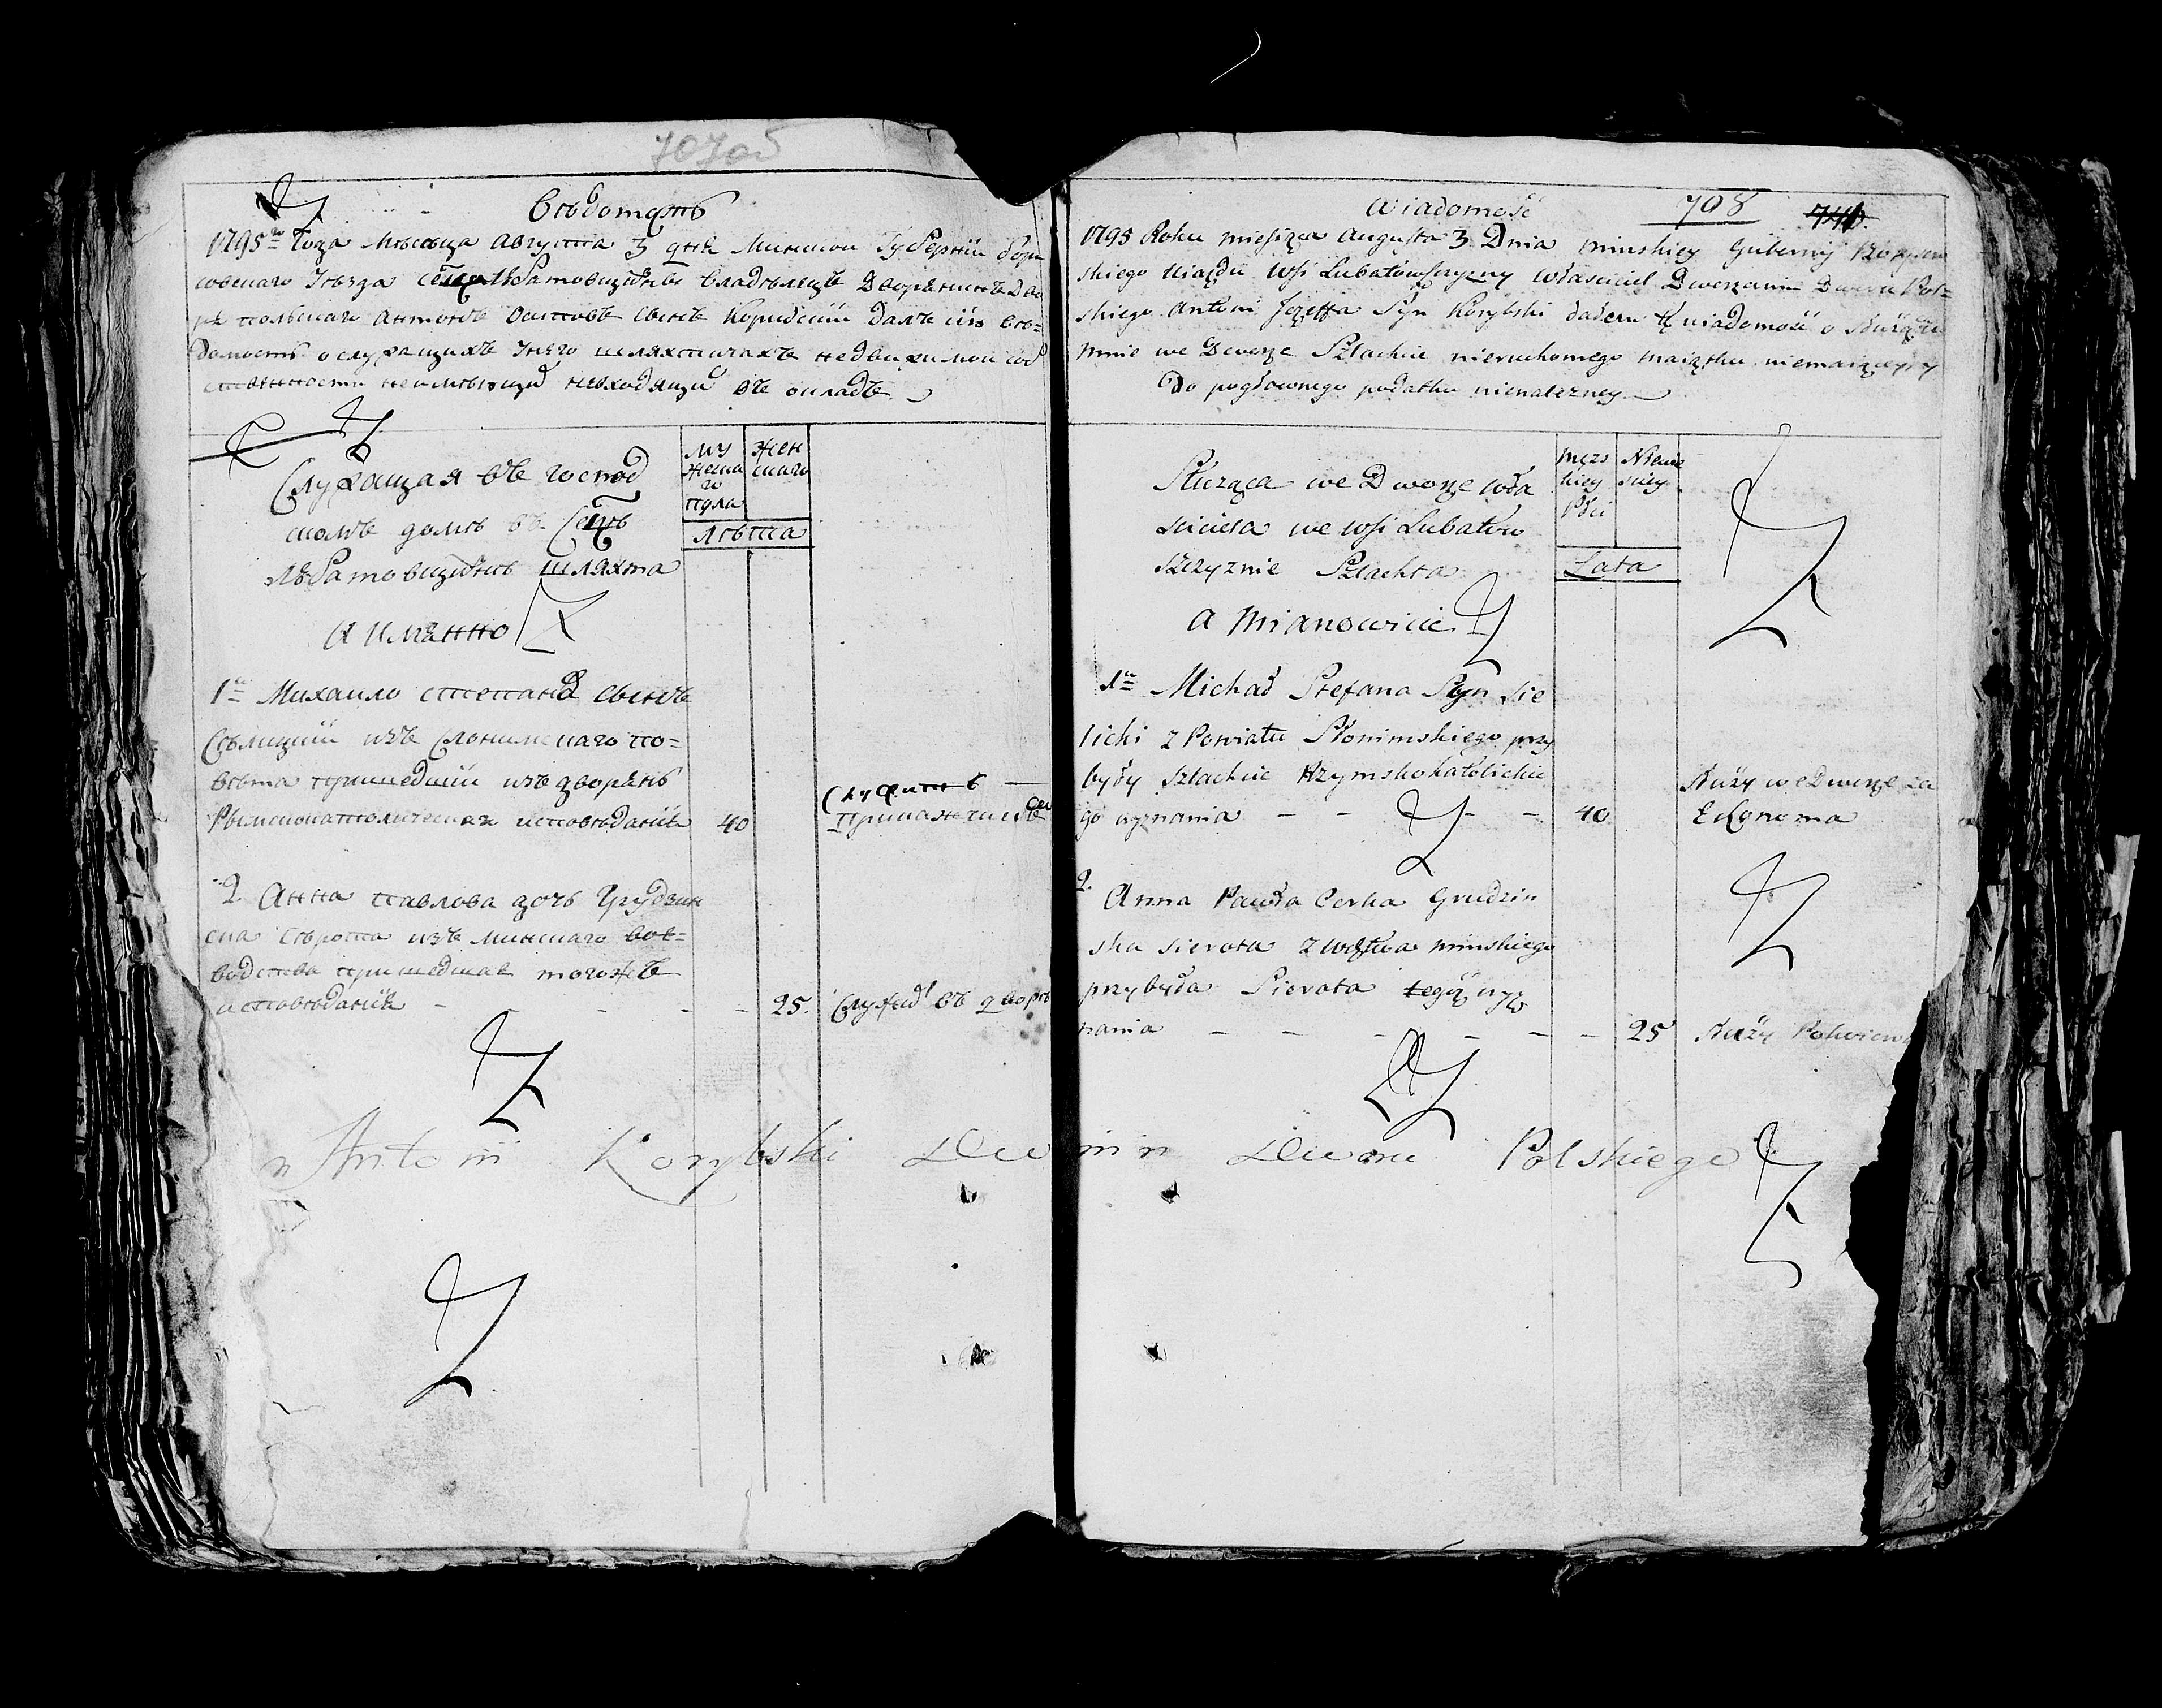 707об
Вѣдомость
1795го Года Мѣсяца Августа 3 дня Минской Губернїи Бори
совскаго Уѣзда Селца Любатовщизны владѣлецъ Дворянинъ Дво
ра польскаго Антонъ Осиповъ сынъ Корибскїй далъ сїю вѣ=
домость о служащихъ у него шляхтичахъ недвижимой соб
ственности неимѣющей невходящей въ окладъ
Служащая въ господ
скомъ домѣ въ Селцѣ
Любатовщизнѣ шляхта
а имянно
му
жеска
го
пола
жен
скаго
Лѣта
1е Михайло степана сынъ
Сѣлицкїй изъ Слонимскаго по=
вѣта пришедшїй изъ дворянъ
Римскокатолическаго исповѣданїя 40
Служитъ
2. Анна павлова дочь Грудзин
ска сѣрота изъ минскаго вое=
водства пришедшая тогожъ
исповѣданїя - - - - 25. Служит въ дворѣ
Wiadomość
708
1795 Roku miesiąca Augusta 3 Dnia minskiey Gubernij Borysow
skiego Uiazdu Wsi Lubatowszczyzny właściciel Dworzanin Dworu Pol=
skiego Antoni Jozeffa Syn Korybski daiem tę wiadomość o służącey
mnie we Dworze Szlachcie nieruchomego maiątku niemaiącey y
do pogłownego podatku nienalezney.
Służąca we Dworze wła
sciciela we wsi Lubatow
szczyznie Szlachta
a Mianowicie
męzs
kiey
Płci
Niewie
sciey
Lata
1e Michał Stefana Syn Sie
licki z Powiatu Słonimskiego przy
były szlachcic Rzymskokatolickie
go wyznania - - - - 40 Służy we Dworze za
Ekonoma
2. Anna Pawła Corka Grudzin
ska sierota z Wdztwa minskiego
przybyła Sierota tegoż wyz
nania - - - - - - 25 Służy Pokoiow
Antoni Korybski Dwo nin Dworu Polskiego